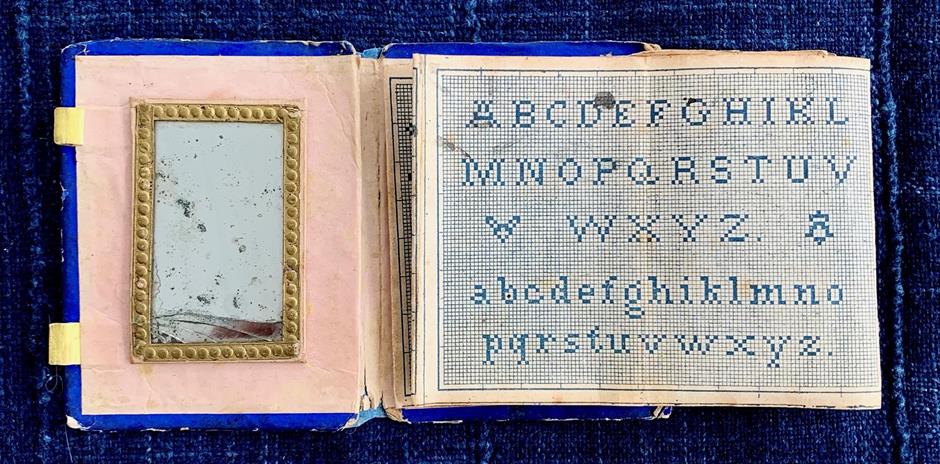 ABCDEFGHIKL
MNOPQRSTUV
WXYZ.
abcdefghiklmno
pqrstuvwxyz.